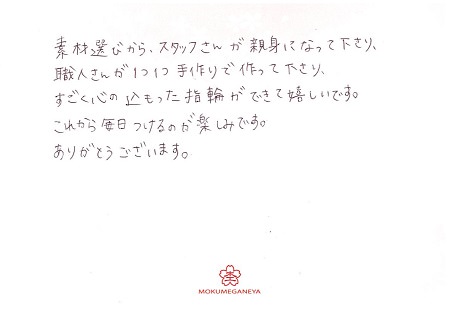 素材選びから、スタッフさんが親身になって下さり、
職人さんが1つ1つ手作りで作って下さり、
すごく心の込もった指輪ができて嬉しいです。
これから毎日つけるのが楽しみです。
ありがとうございます。
MOKUMEGANEYA